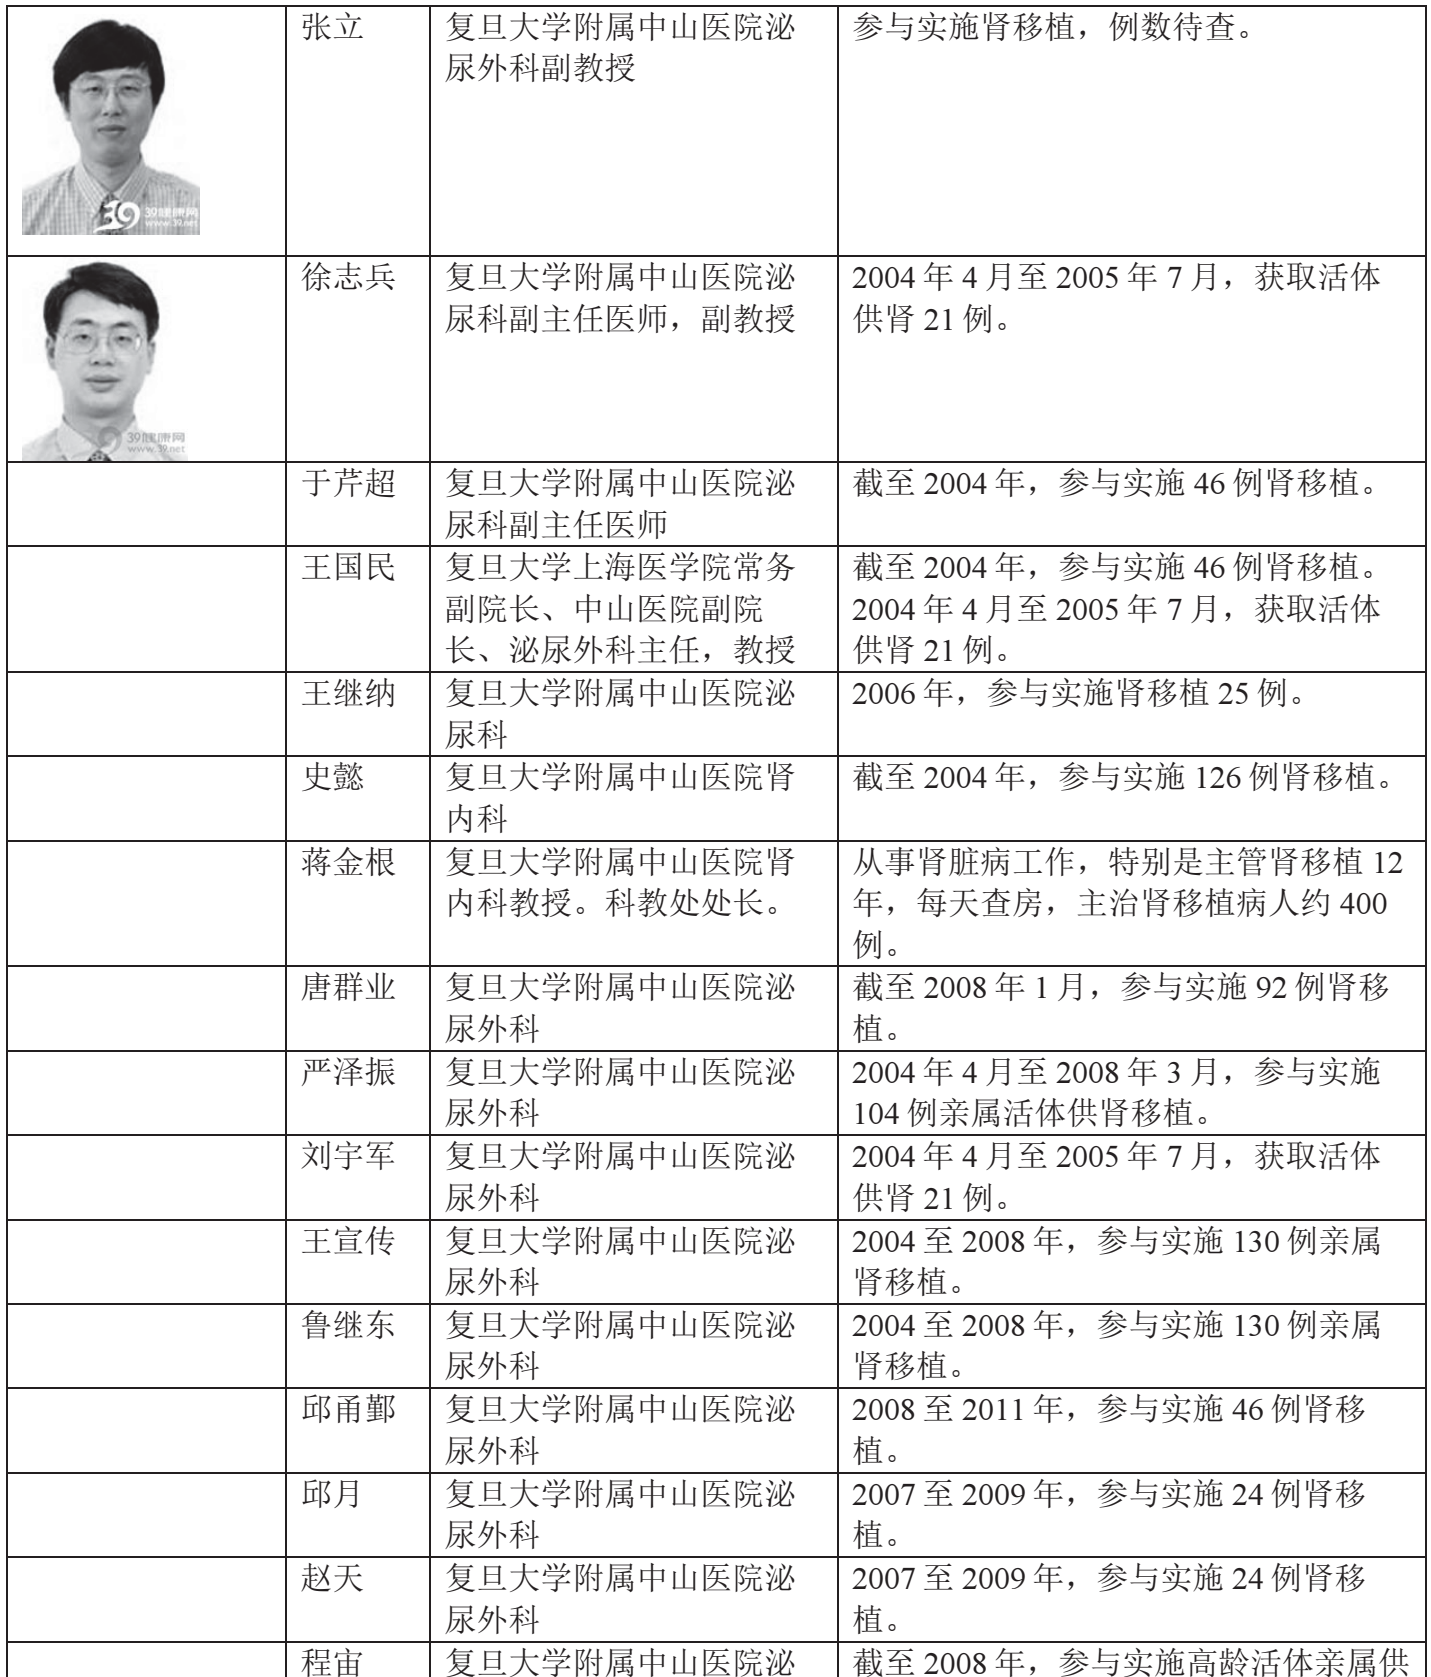 张立
复旦大学附属中山医院泌
尿外科副教授
参与实施肾移植，例数待查。
39 39健康网
www.39.net
徐志兵
复旦大学附属中山医院泌
尿科副主任医师，副教授
2004 年 4 月至 2005 年 7 月，获取活体
供肾 21 例。
39健康网
www.39.net
于芹超
复旦大学附属中山医院泌
尿科副主任医师
截至 2004 年，参与实施 46 例肾移植。
王国民
复旦大学上海医学院常务
副院长、中山医院副院
长、泌尿外科主任，教授
截至 2004 年，参与实施 46 例肾移植。
2004 年 4 月至 2005 年 7 月，获取活体
供肾 21 例。
王继纳
复旦大学附属中山医院泌
尿科
2006 年，参与实施肾移植 25 例。
史懿
复旦大学附属中山医院肾
内科
截至 2004 年，参与实施 126 例肾移植。
蒋金根
复旦大学附属中山医院肾
内科教授。科教处处长。
从事肾脏病工作，特别是主管肾移植 12
年，每天查房，主治肾移植病人约 400
例。
唐群业
复旦大学附属中山医院泌
尿外科
截至 2008 年 1 月，参与实施 92 例肾移
植。
严泽振
复旦大学附属中山医院泌
尿外科
2004 年 4 月至 2008 年 3 月，参与实施
104 例亲属活体供肾移植。
刘宇军
复旦大学附属中山医院泌
尿外科
2004 年 4 月至 2005 年 7 月，获取活体
供肾 21 例。
王宣传
复旦大学附属中山医院泌
尿外科
2004 至 2008 年，参与实施 130 例亲属
肾移植。
鲁继东
复旦大学附属中山医院泌
尿外科
2004 至 2008 年，参与实施 130 例亲属
肾移植。
邱甬鄞
复旦大学附属中山医院泌
尿外科
2008 至 2011 年，参与实施 46 例肾移
植。
邱月
复旦大学附属中山医院泌
尿外科
2007 至 2009 年，参与实施 24 例肾移
植。
赵天
复旦大学附属中山医院泌
尿外科
2007 至 2009 年，参与实施 24 例肾移
植。
程宙
复旦大学附属中山医院泌
截至 2008 年，参与实施高龄活体亲属供